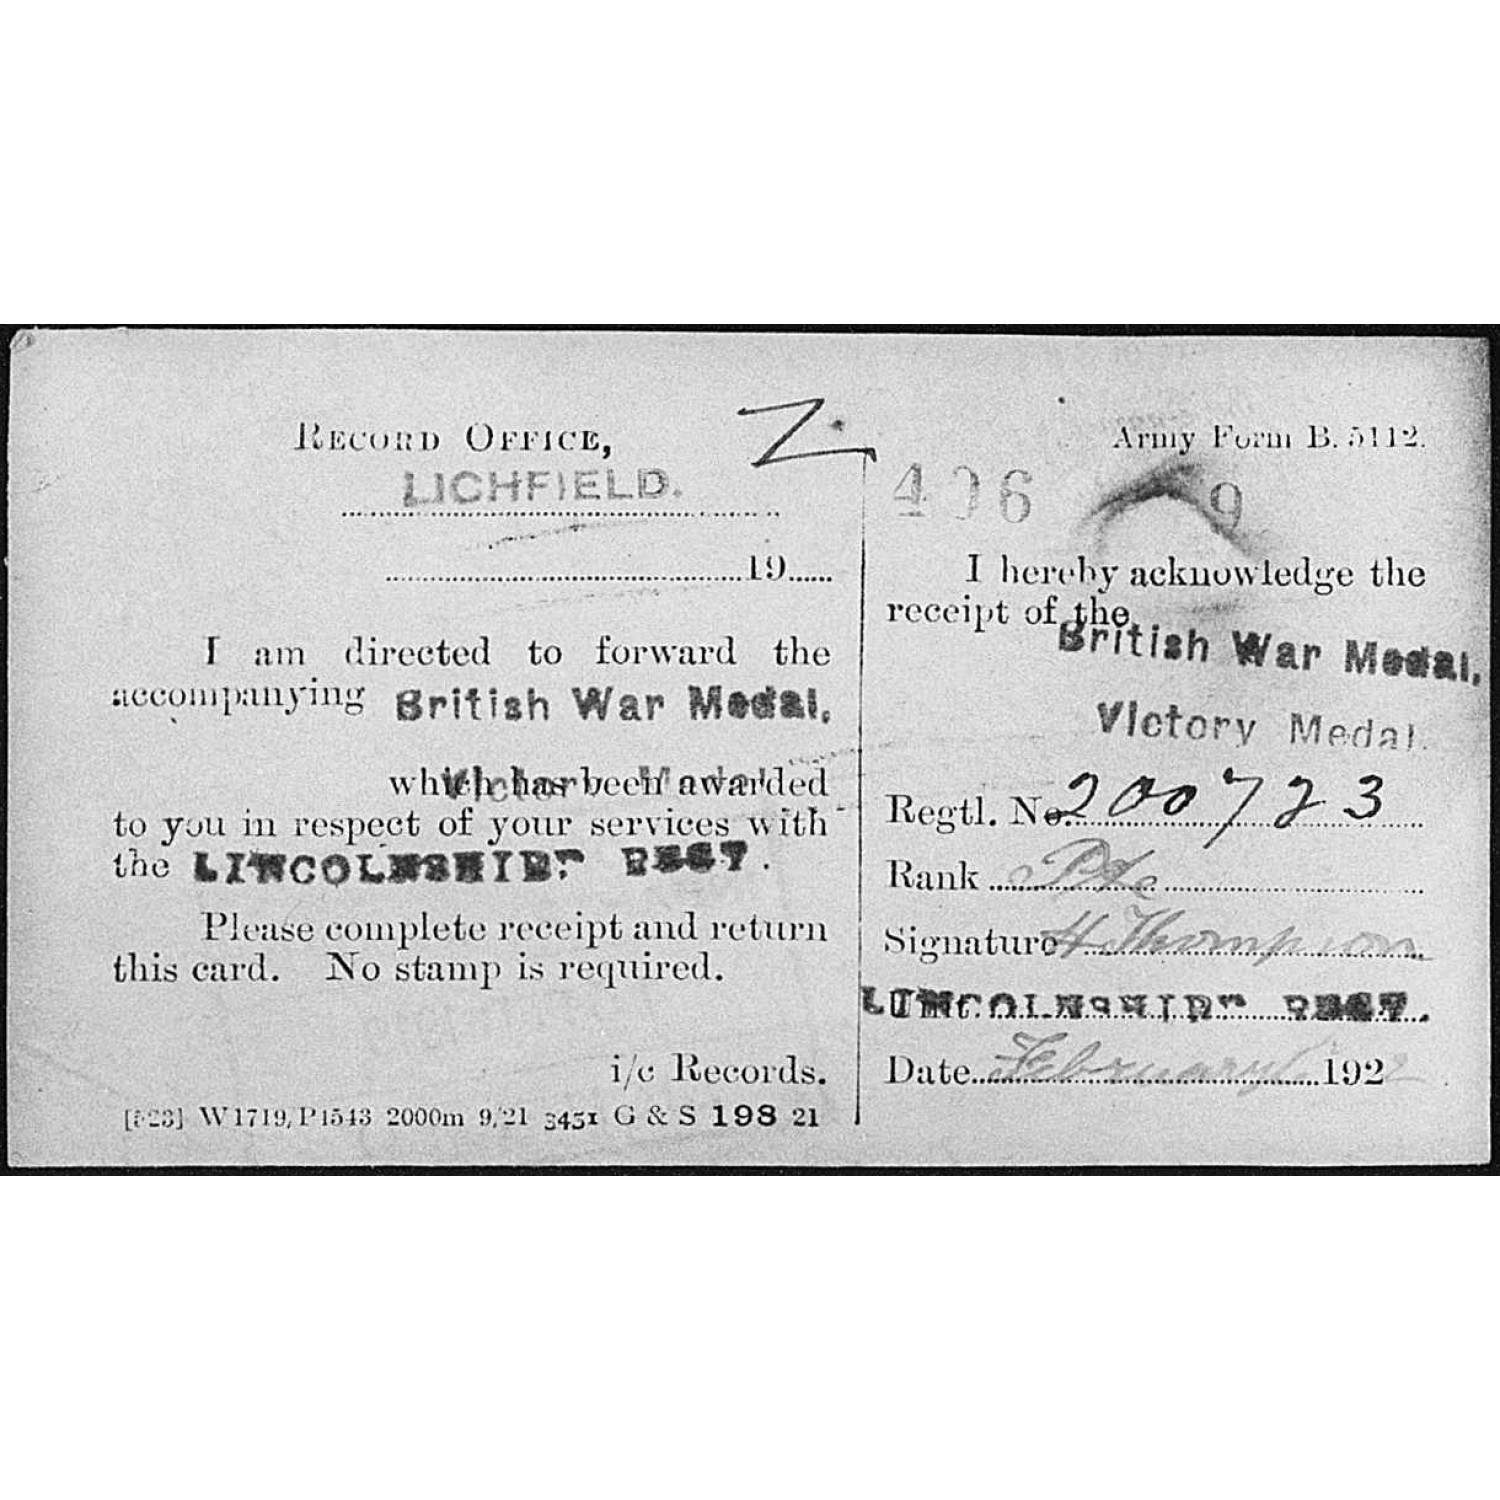 RECORD OFFICE,
LICHFIELD.
19
I am directed to forward the
accompanying British War Medal,
Victory Medal
which has been awarded
to you in respect of your services with
the LINCOLNSHIRE REGT.
Please complete receipt and return
this card. No stamp is required.
i/c Records.
[523] W1719, P1543 2000m 9/21 3451 G & S 198 21
Z
Army Form B. 5112.
I hereby acknowledge the
receipt of the
British War Medal.
Victory Medal.
Regtl. No. 200723
Rank Pte
Signature H Thompson
LINCOLNSHIRE REGT.
Date February 1922